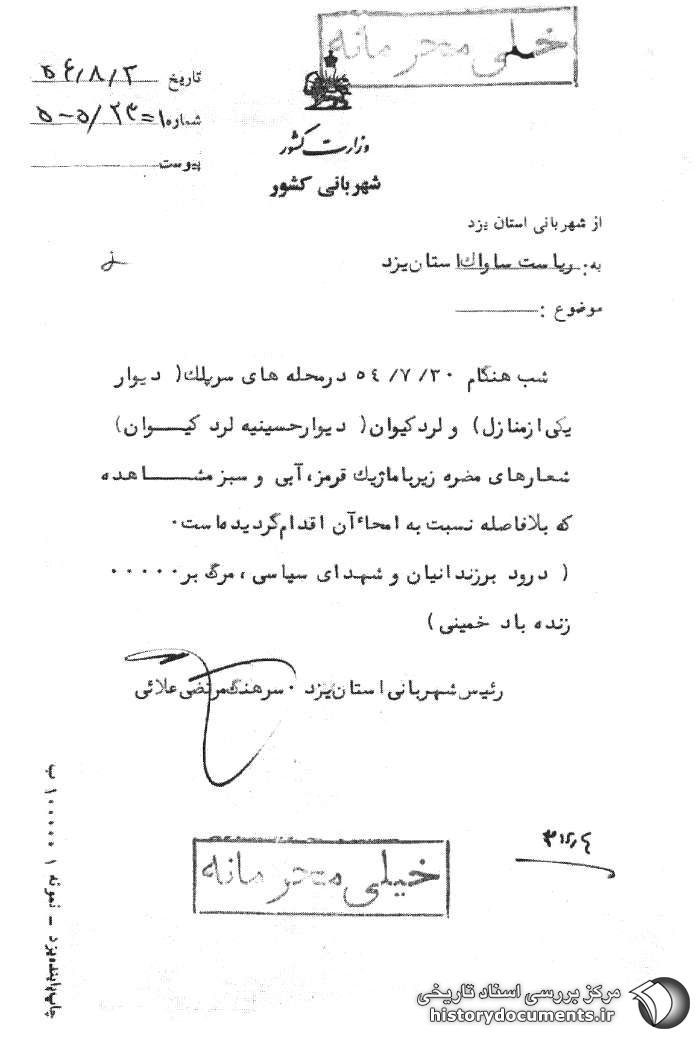 خیلی محرمانه
تاریخ ۵۴/۸/۲
شماره ۵-۵/۲۳=۱
پیوست
وزارت کشور
شهربانی کشور
از شهربانی استان یزد
به: ریاست ساواک استان یزد
موضوع :
شب هنگام ۵۴/۷/۳۰ درمحله های سرپلك( دیوار
یکی ازمنازل) و لردکیوان( دیوارحسینیه لرد کیوان)
شعارهای مضره زیرباماژیك قرمز، آبی و سبز مشاهده
که بلافاصله نسبت به امحاء آن اقدام گردیده است.
( درود برزندانیان و شهدای سیاسی، مرگ بر.....
زنده باد خمینی)
رئیس شهربانی استان یزد . سرهنگ مرتضی علائی
خیلی محرمانه
چاپ پاینده یزد – نمونه ۱ ۱۰۰۰۰۰ ب
مرکز بررسی اسناد تاریخی
historydocuments.ir